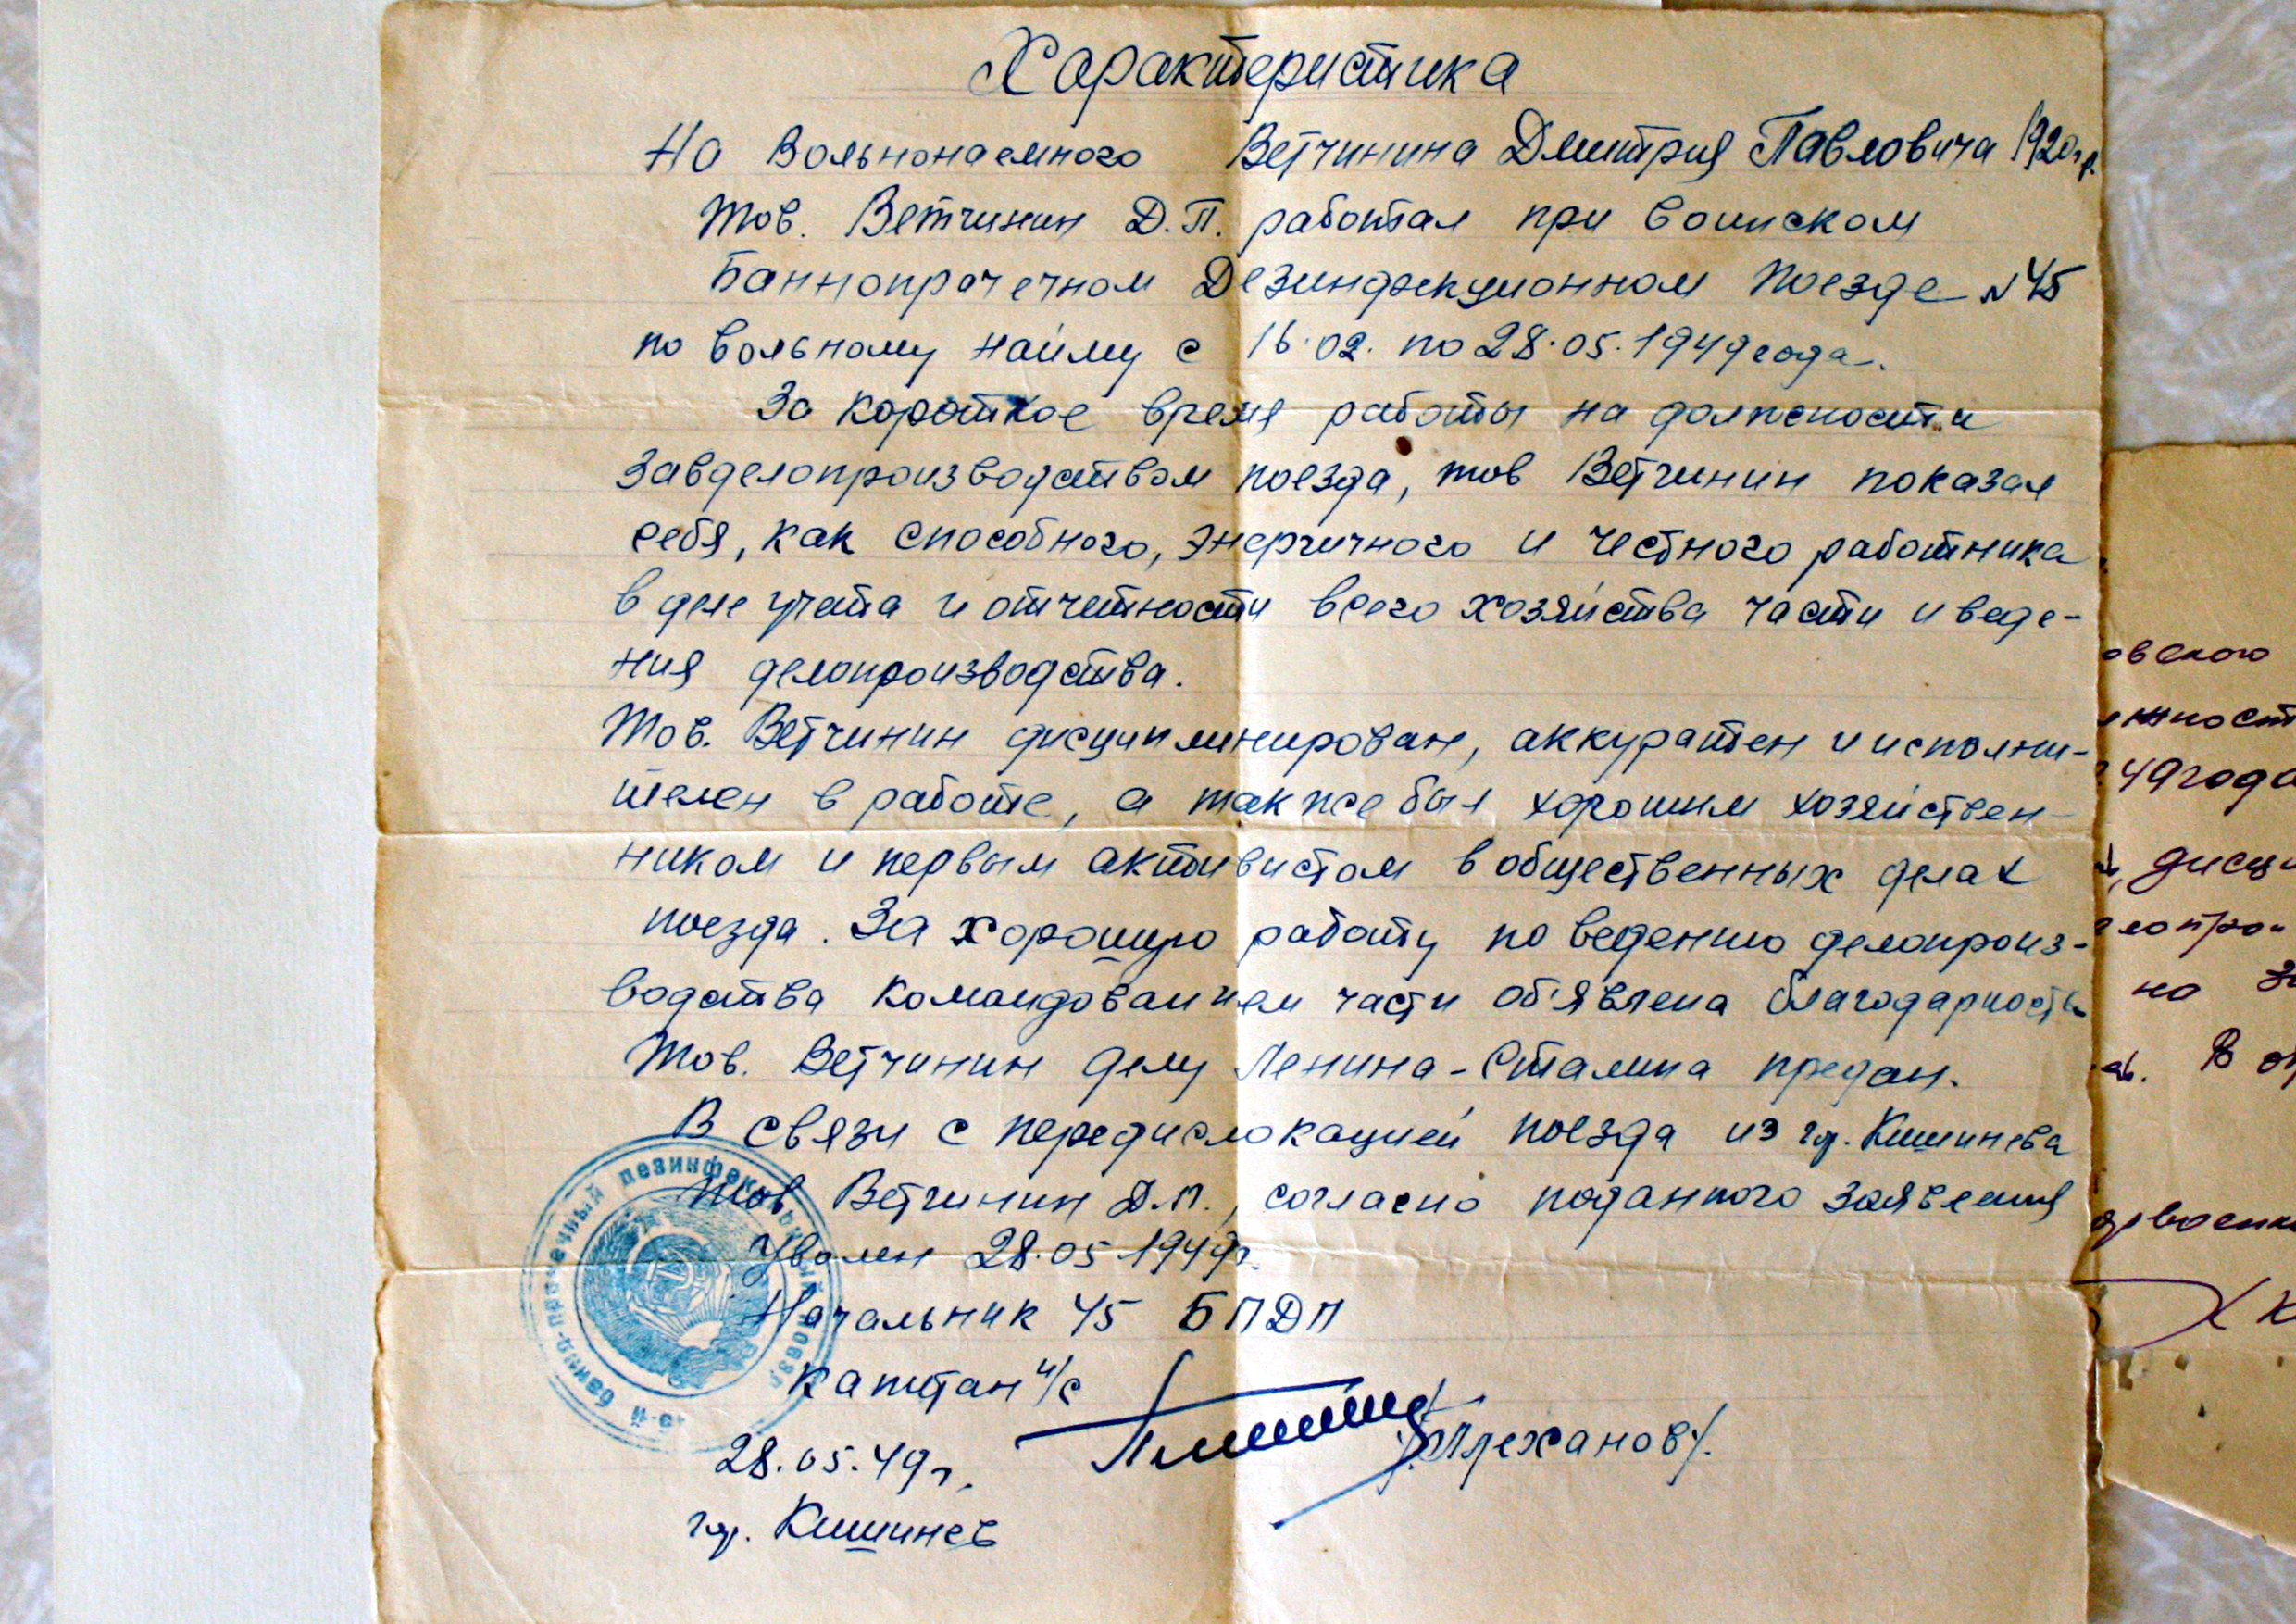 Характеристика
На Вольнонаемного Ветчинина Дмитрия Павловича 1920г.р.
Тов. Ветчинин Д.П. работал при воинском
Баннопрачечном Дезинфекционном Поезде №45
по вольному найму с 16.02. по 28.05.1949 года.
За короткое время работы на должности
Завделопроизводством поезда, тов Ветчинин показал
себя, как способного, энергичного и честного работника
в деле учета и отчетности всего хозяйства части и веде-
ния делопроизводства.
Тов. Ветчинин дисциплинирован, аккуратен и исполни-
телен в работе, а также был хорошим хозяйствен-
ником и первым активистом в общественных делах
поезда. За хорошую работу по ведению делопроиз-
водства командованием части об'явлена благодарность
Тов. Ветчинин делу Ленина-Сталина предан.
В связи с передислокацией поезда из гор. Кишинева
тов Ветчинин Д.П., согласно поданного заявления
Уволен 28.05.1949г.
Начальник 45 БПДП
Капитан и/с
/Плеханов/.
28.05.49г.
гор. Кишинев
45-й банно-прачечный дезинфекционный поезд
овского
жност
49 года
, дисци
делопрои
на За
В от
Х К